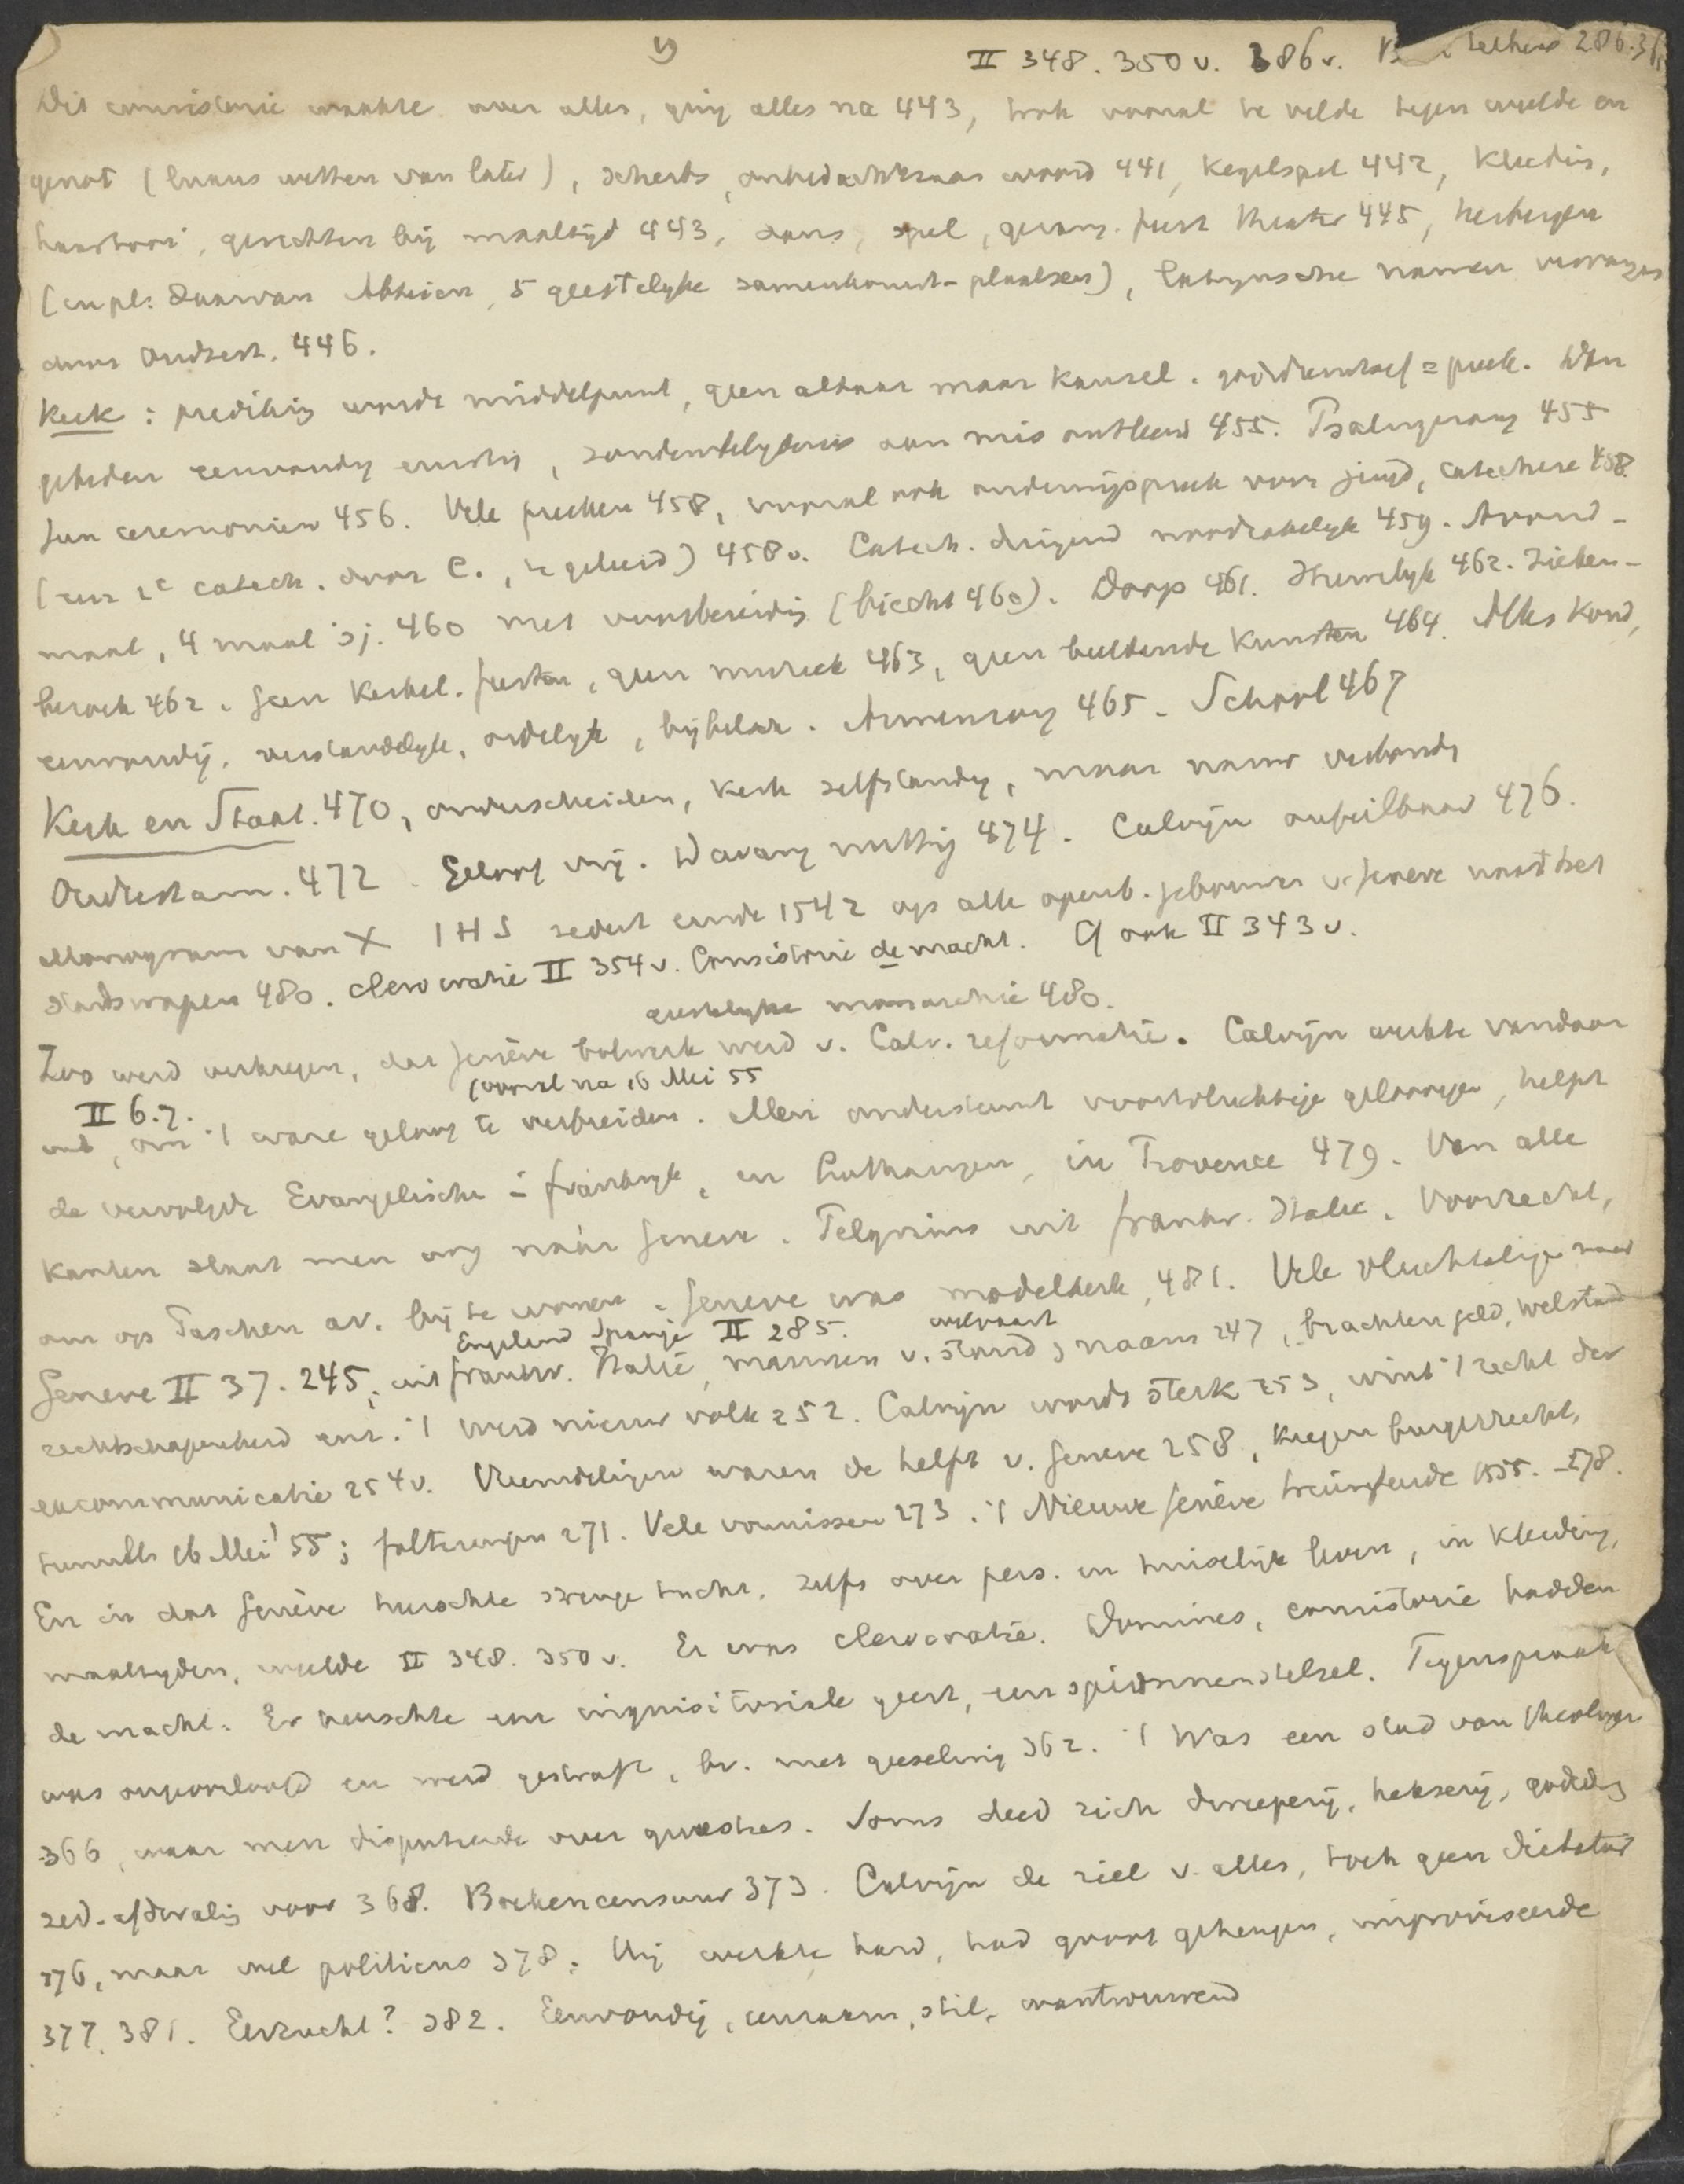 9
II 348. 350 v. 386 v.
Dit consistorie waakte over alles, ging alles na 443, trok vooral te velde tegen weelde en
genot (luxus wetten van later), scherts, onbedachtzaam woord 441, kegelspel 442, kleeding,
haartooi, gerechten bij maaltijd 443, dans, spel, gezang. feest theater 445, herbergen
(in pl: daarvan Abteien, 5 geestelyke samenkomst-plaatsen), latynsche namen vervangen
door Oudtest. 446.
Kerk : prediking wordt middelpunt, geen altaar maar kansel. godsdienstoef = preek. Dan
gebeden eenvoudig ernstig, zondenbelydenis aan mis ontleend 455. Psalmgezang 455
Geen ceremoniën 456. Vele preeken 458, vooral ook onderwijspreek voor jeugd, catechese 458
(een 2e catech. door C., te geleerd) 458 v. Catech. dringend noodzakelyk 459. Avond-
maal, 4 maal 'sj. 460 met voorbereiding (biecht 460). Doop 461. Huwelyk 462. Zieken-
bezoek 462. Geen kerkel. feesten, geen muziek 463, geen beeldende kunsten 464. Alles koud,
eenvoudig, verstandelyk, ordelyk, bijbelsch. Armenzorg 465. School 467
Kerk en Staat. 470, onderscheiden, kerk zelfstandig, maar nauw verbonden
Oudtestam. 472. Geloof vrij. Dwang nuttig 474. Calvijn onfeilbaar 476.
Monogram van X IHS sedert einde 1542 op alle openb. gebouwen v. Geneve naast het
stadswapen 480. clerocratie II 354 v. Consistorie de macht. Cf ook II 343 v.
geestelyke monarchie 480.
Zoo werd verkregen, dat Genève bolwerk werd v. Calv. reformatie. Calvijn werkte vandaar
II 6.7. (vooral na 16 Mei 55
uit, om 't ware geloof te verbreiden. Men ondersteunt voortvluchtige geloovigen, helpt
de vervolgde Evangelische in frankryk, en Lutharingen, in Provence 479. Van alle
kanten slaat men oog náár Geneve. Pelgrims uit frankr. Italie. Voorrecht,
om op Paschen av. bij te wonen. Geneve was modelkerk, 481. Vele vluchtelingen naar
Engeland Spanje II 285. welvaart
Geneve II 37. 245, uit frankr. Italie, mannen v. stand, naam 247, brachten geld, welstand
rechtschapenheid enz. 't werd nieuw volk 252. Calvijn wordt sterk 253, wint 't recht der
excommunicatie 254 v. Vreemdelingen waren de helft v. Geneve 258, kregen burgerrecht,
tumult 16 Mei '55; folteringen 271. Vele vonnissen 273. 't Nieuwe Genève triumfeerde 1555. - 278.
En in dat Genève heerschte strenge tucht, zelfs over pers. en huiselijk leven, in kleeding,
maaltyden, weelde II 348. 350 v. Er was clerocratie. Dominés, consistorie hadden
de macht. Er heerschte een inquisitoriale geest, een spionnenstelsel. Tegenspraak
was ongeoorloofd en werd gestraft, bv. met geeseling 362. 't Was een stad van theologen
366, waar men disputeerde over quaesties. Soms deed zich dweeperij, hekserij, godsd.
zed. afdwaling voor 368. Boekencensuur 373. Calvijn de ziel v. alles, toch geen dictator
376, maar wel politicus 378. Hij werkte hard, had groot geheugen, improviseerde
377. 381. Eerzucht? 382. Eenvoudig, eenzaam, stil, wantrouwend